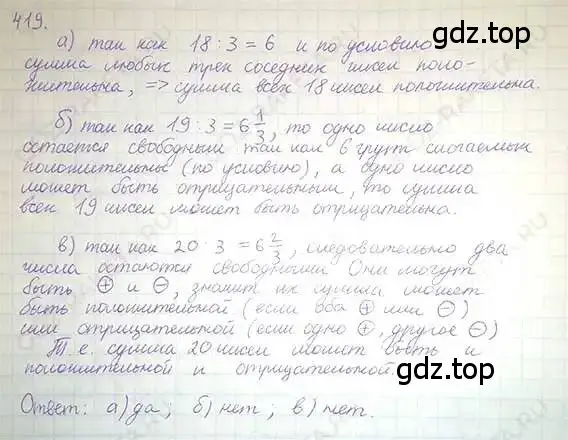 419.
а) так как 18 : 3 = 6 и по условию
сумма любых трех соседних чисел поло-
жительна, => сумма всех 18 чисел положительна.
б) так как 19 : 3 = 6 1/3, то одно число
остается свободным так как 6 групп слагаемых
положительные (по условию), а одно число
может быть отрицательным, то сумма
всех 19 чисел может быть отрицательна.
в) так как 20 : 3 = 6 2/3, следовательно два
числа остаются свободными Они могут
быть ⊕ и ⊖, значит их сумма может
быть положительной (если оба ⊕ или ⊖)
или отрицательной (если одно ⊕, другое ⊖)
Т.е. сумма 20 чисел может быть и
положительной и отрицательной.
Ответ: а) да; б) нет; в) нет.
гдз.top
гдз.top